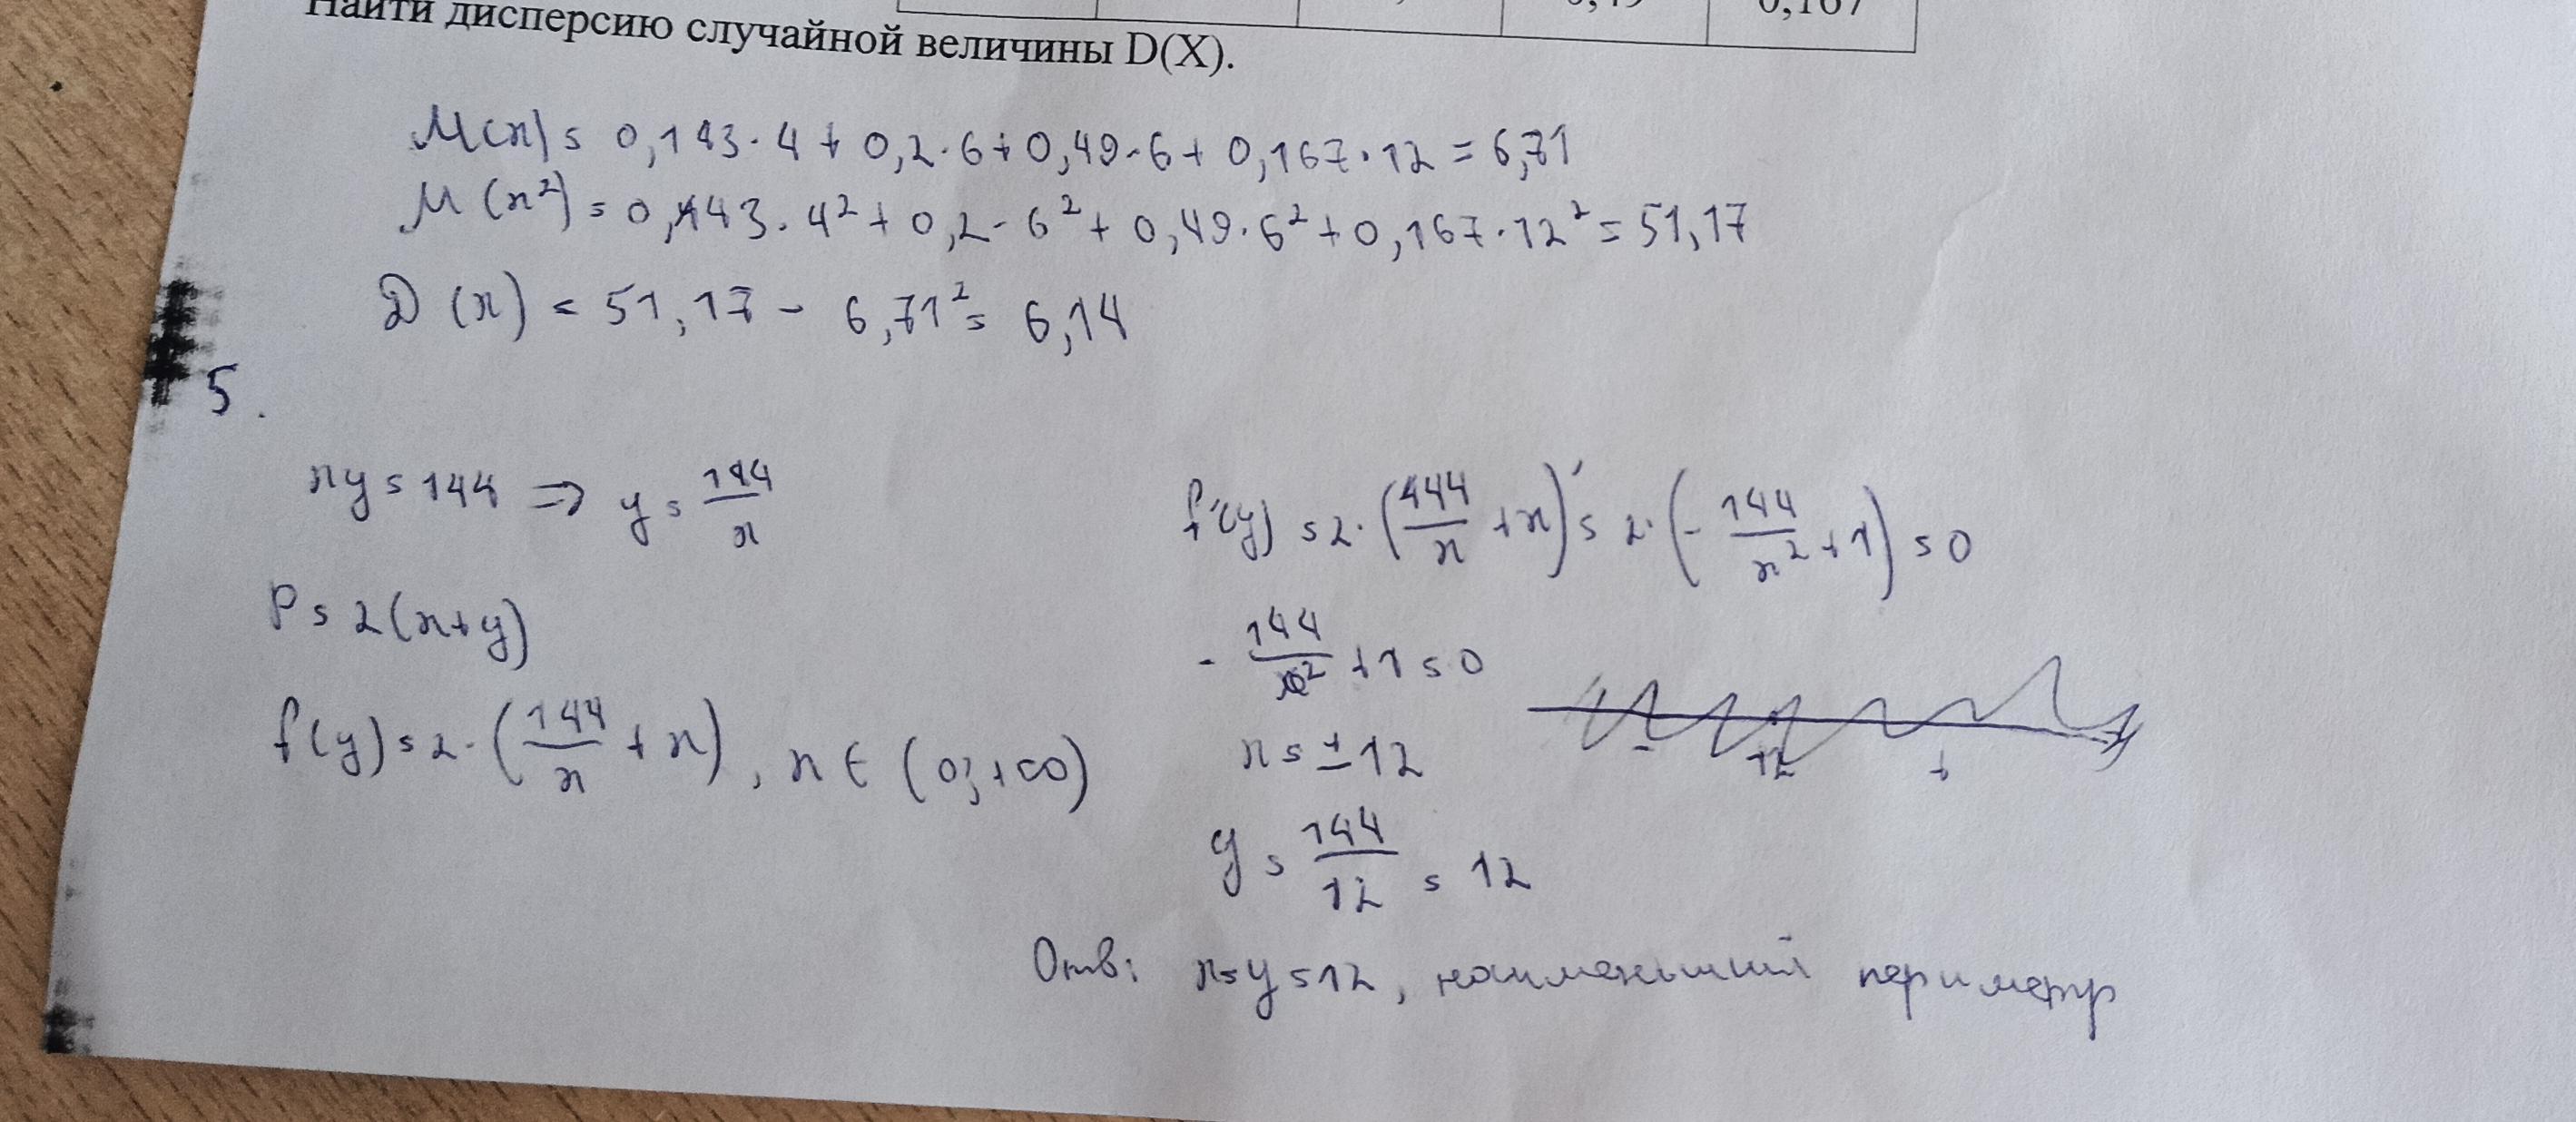 Найти дисперсию случайной величины D(X).
0,49 0,167
M(x) = 0,143·4 + 0,2·6 + 0,49·6 + 0,167·12 = 6,71
M(x²) = 0,143·4² + 0,2·6² + 0,49·6² + 0,167·12² = 51,17
D(x) = 51,17 - 6,71² = 6,14
5.
xy = 144 ⇒ y = 144/x
P = 2(x+y)
f(y) = 2·(144/x + x), x ∈ (0;+∞)
f'(y) = 2·(144/x + x)' = 2·(-144/x² + 1) = 0
-144/x² + 1 = 0
- 12 +
x = ±12
y = 144/12 = 12
Отв: x=y=12, наименьший периметр